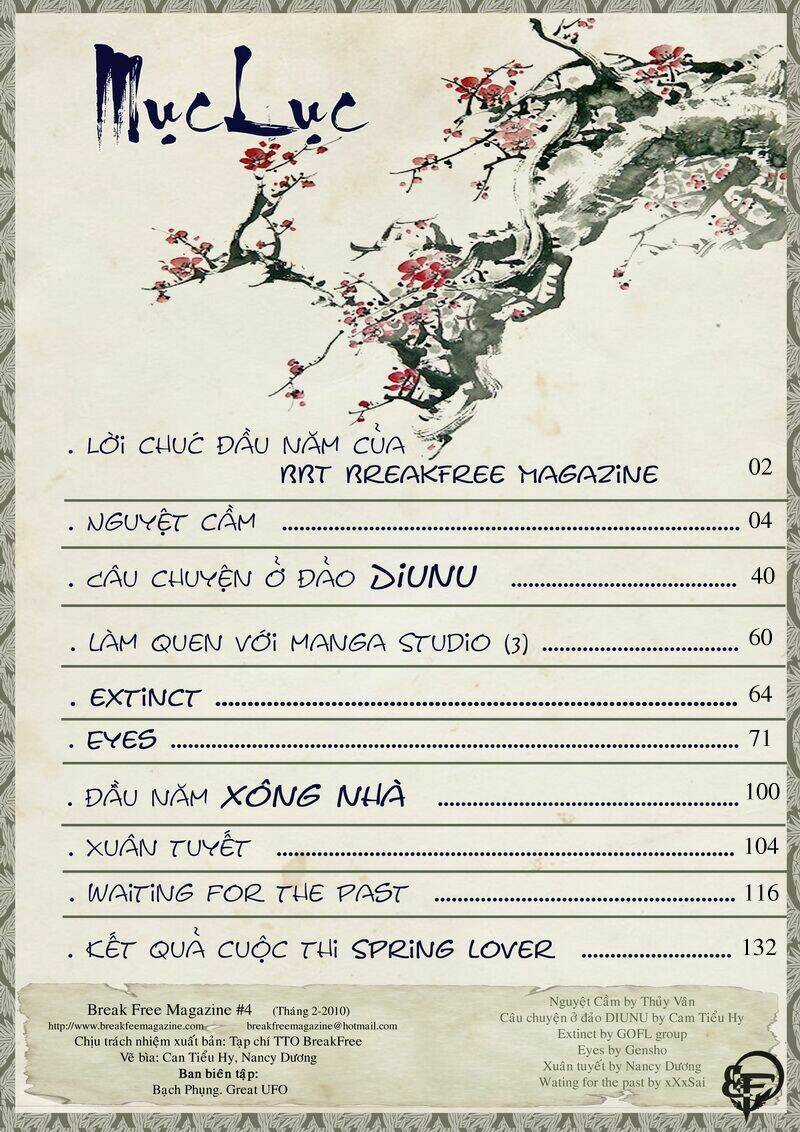 Mục Lục
. LỜI CHÚC ĐẦU NĂM CỦA
BBT BREAKFREE MAGAZINE 02
. NGUYỆT CẦM ........ 04
. CÂU CHUYỆN Ở ĐẢO DIUNU ........ 40
. LÀM QUEN VỚI MANGA STUDIO (3) ........ 60
. EXTINCT ........ 64
. EYES ........ 71
. ĐẦU NĂM XÔNG NHÀ ........ 100
. XUÂN TUYẾT ........ 104
. WAITING FOR THE PAST ........ 116
. KẾT QUẢ CUỘC THI SPRING LOVER ........ 132
Break Free Magazine #4 (Tháng 2-2010)
http://www.breakfreemagazine.com breakfreemagazine@hotmail.com
Chịu trách nhiệm xuất bản: Tạp chí TTO BreakFree
Vẽ bìa: Can Tiểu Hy, Nancy Dương
Ban biên tập:
Bạch Phụng. Great UFO
Nguyệt Cầm by Thủy Vân
Câu chuyện ở đảo DIUNU by Cam Tiểu Hy
Extinct by GOFL group
Eyes by Gensho
Xuân tuyết by Nancy Dương
Wating for the past by xXxSai